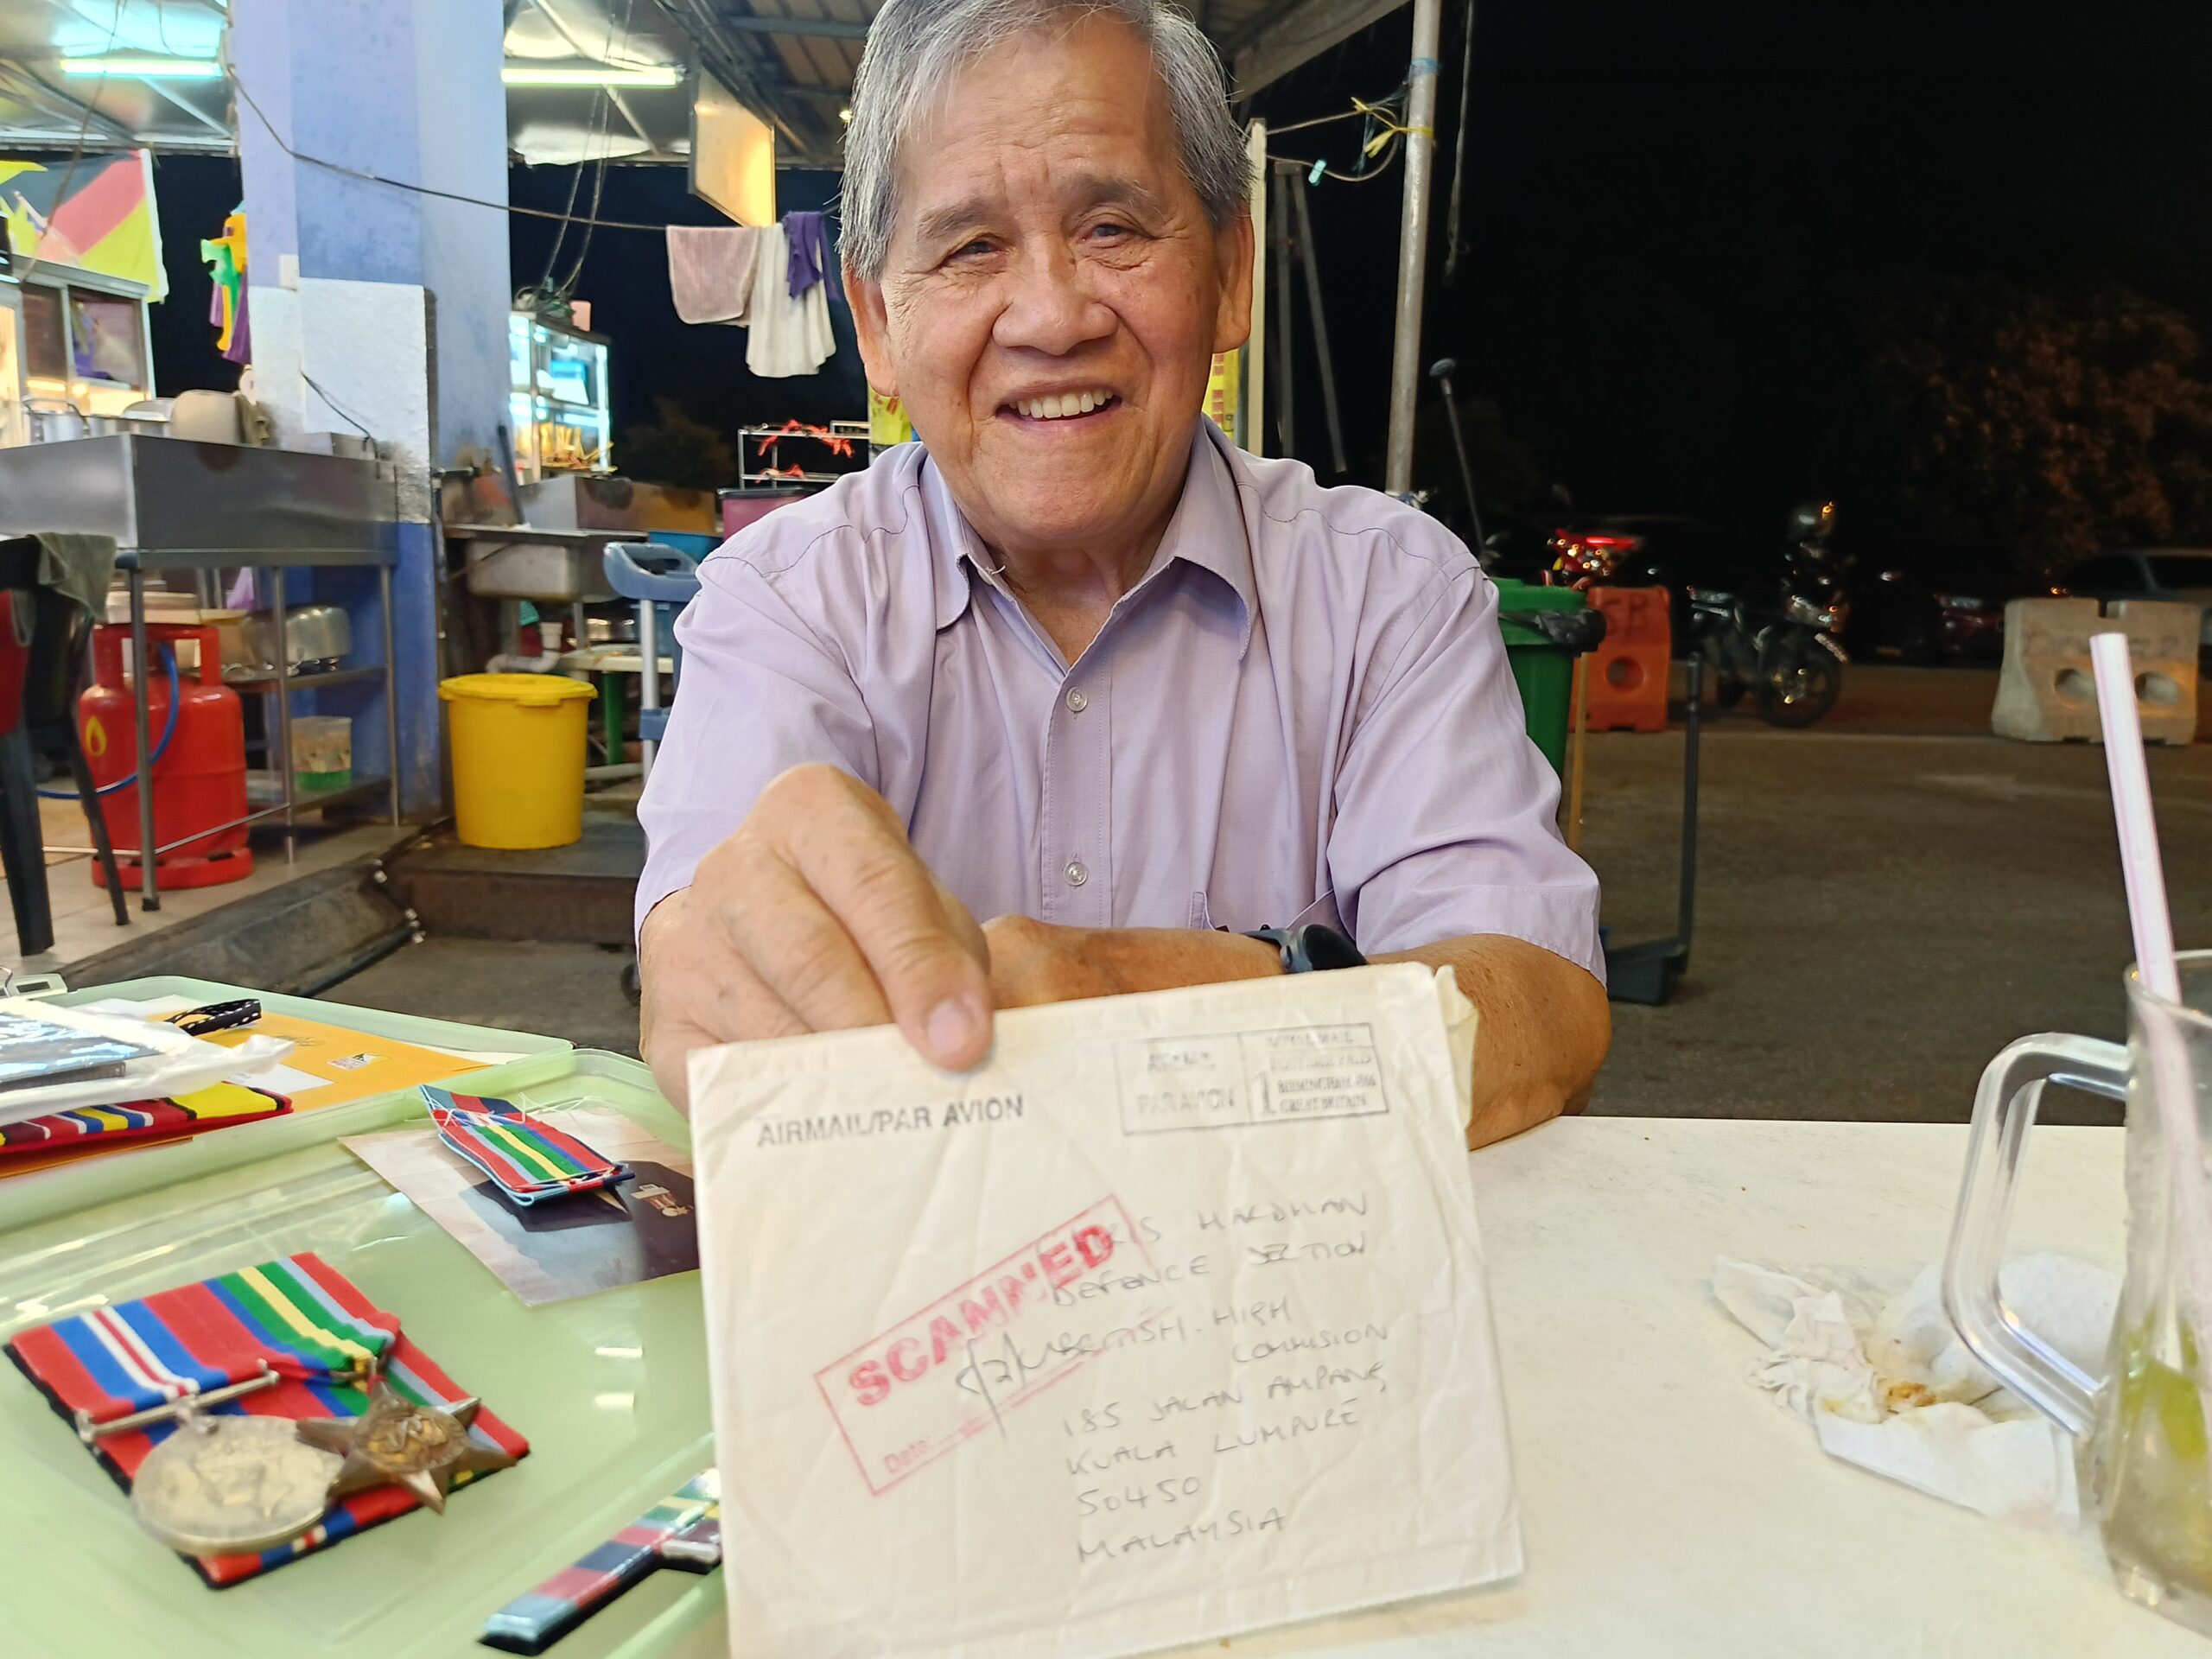 AIRMAIL/PAR AVION
PAR AVION
ROYAL MAIL
POSTAGE PAID
1
BIRMINGHAM
GREAT BRITAIN
SCANNED
Date:
HARDMAN
DEFENCE SECTION
BRITISH HIGH
COMMISION
185 JALAN AMPANG
KUALA LUMPURE
50450
MALAYSIA
5B